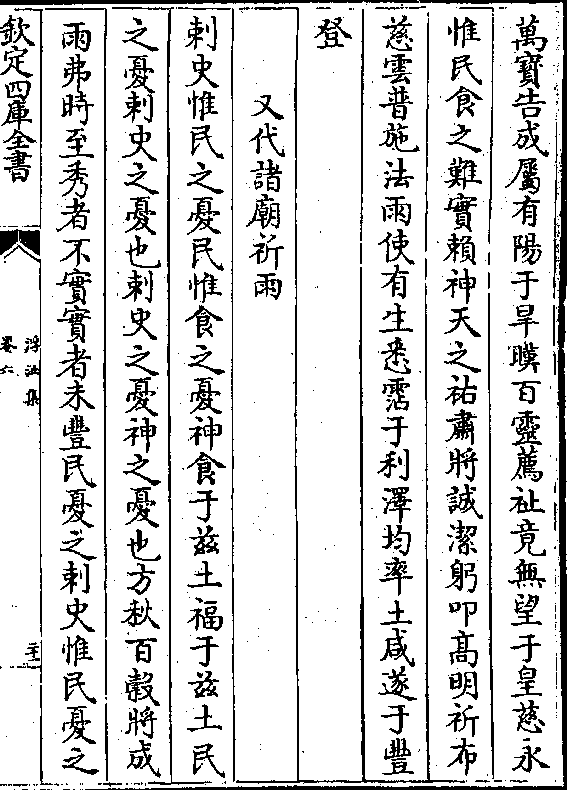 萬寶告成屬有陽于旱暵百靈薦祉竟無望于皇慈永
惟民食之難實賴神天之祐肅將誠潔躬叩髙明祈布
慈雲普施法雨使有生悉霑于利澤均率土咸遂于豐
登
又代諸廟祈雨
刺史惟民之憂民惟食之憂神食于兹土福于兹土民
之憂刺史之憂也刺史之憂神之憂也方秋百穀將成
雨弗時至秀者不實實者未豐民憂之刺史惟民憂之
欽定四庫全書
浮沚集
卷六